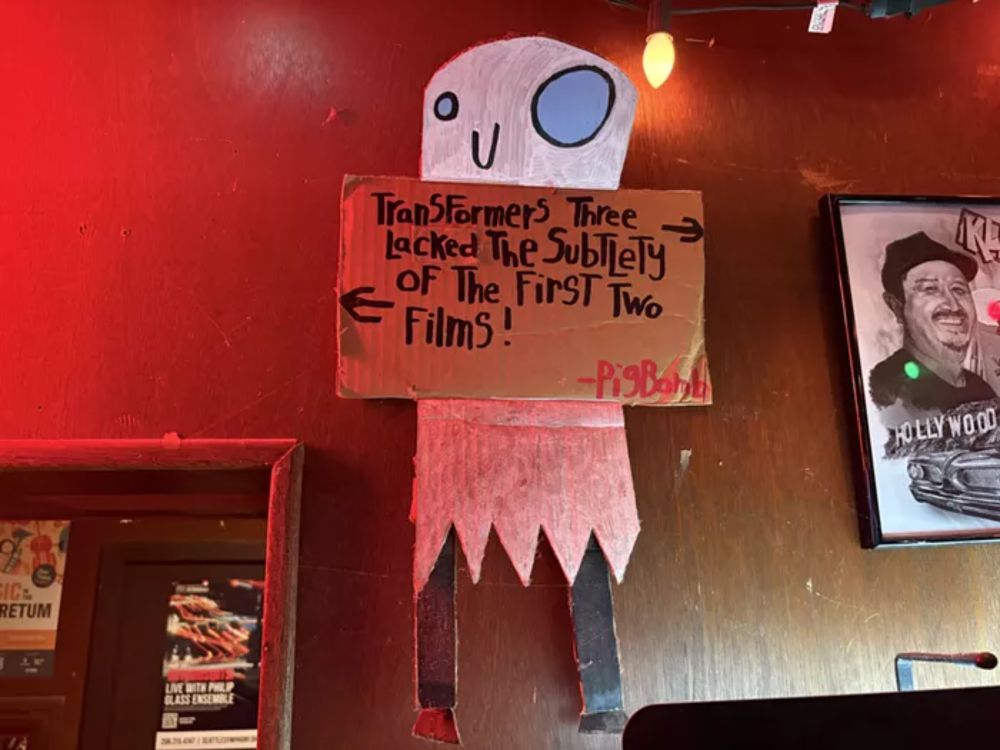 Transformers Three
Lacked The Subtlety
of The First Two
Films!
-PigBomb
HOLLYWOOD
RETUM
LIVE WITH PHILIP
GLASS ENSEMBLE